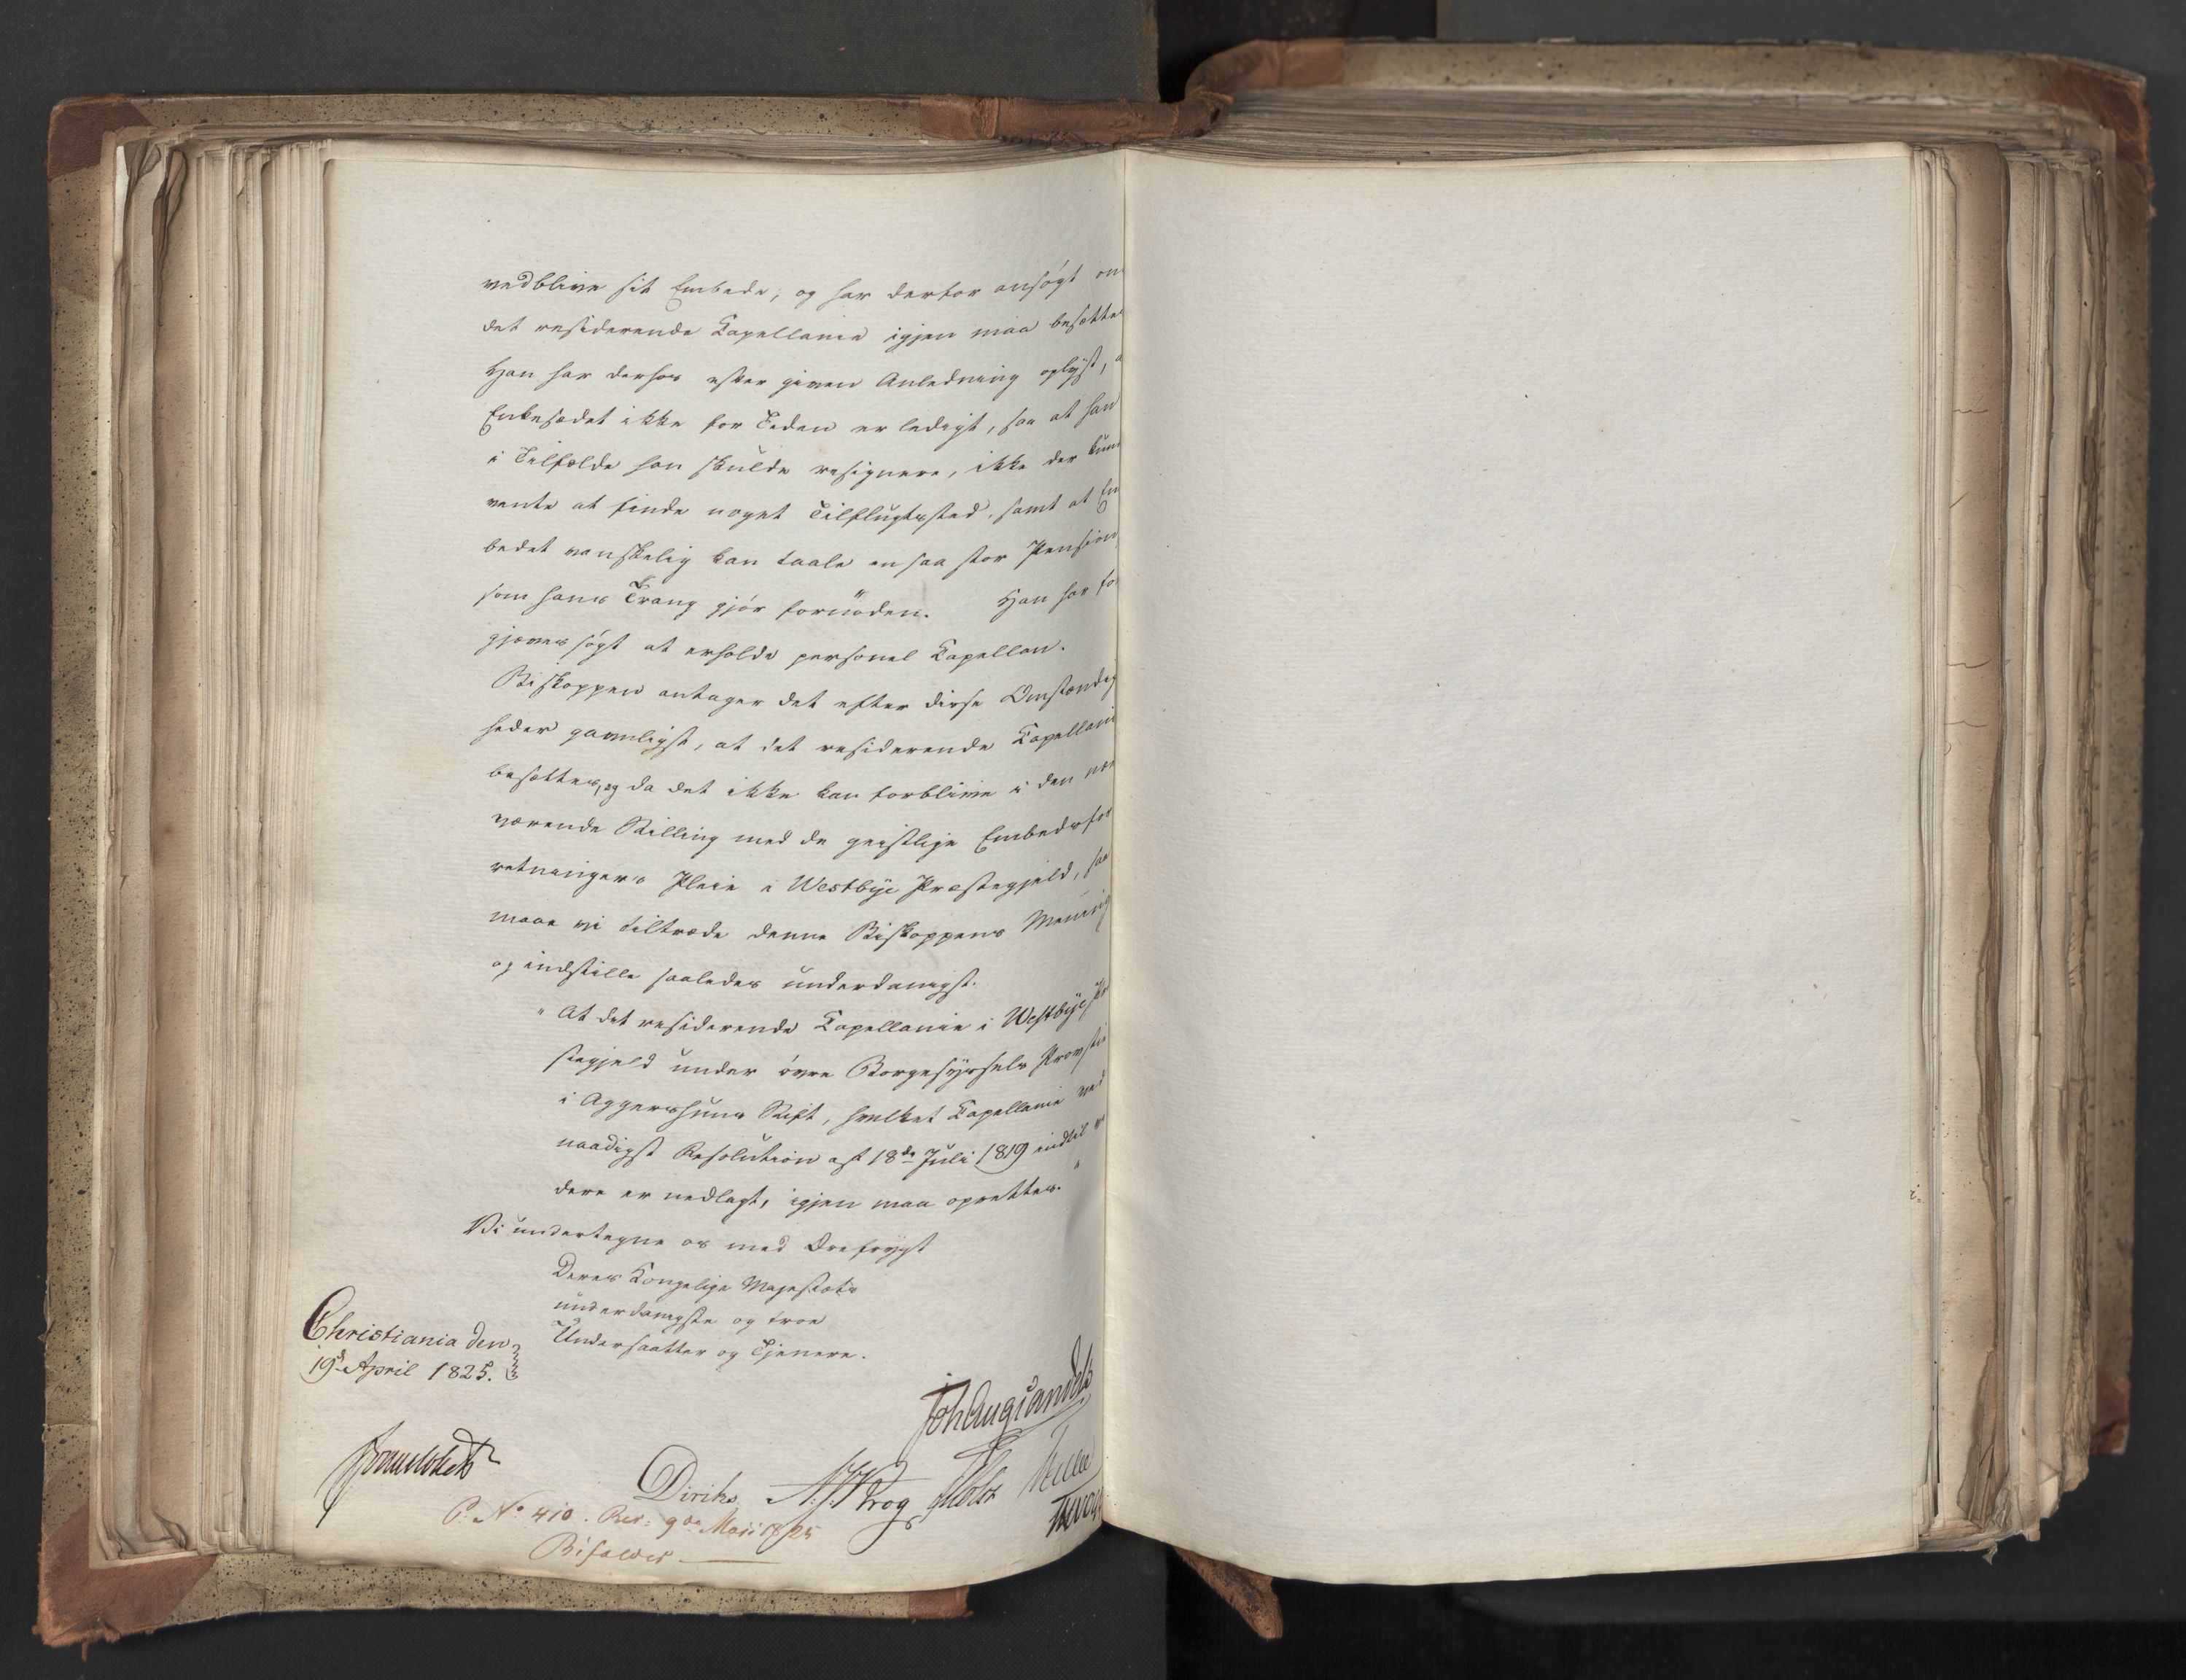 vedblive sit Embede; og har derfor ansøgt om
det residerende Capellanie igjen maa besættes
Han har derhos efter given Anledning oplyst, a
Enkesædet ikke for Tiden er ledigt, saa at han
i Tilfælde han skulde resignere, ikke der kun
vente at finde noget Tilflugtssted, samt at Em
bedet vanskelig kan taale en saa stor Pension,
som hans Trang gjør fornöden. Han har for
gjæves søgt at erholde personel Capellan.
Biskoppen antager det efter disse Omstændig
heder gavnligst, at det residerende Capellani
besættes, og da det ikke kan forblive i den nær
værende Stilling med de geistlige Embedsfor
retningers Pleie i Westbye Præstegjeld, saa
maae vi tiltræde denne Biskoppens Mening
og indstille saaledes underdanigst.
" At det residerende Capellanie i Westbye Præ
stegjeld under øvre Borgesyssels Provstie
i Aggershuus Stift, hvilket Capellanie ved
naadigst Resolution af 18de Juli 1819 indtil vi
dere er nedlagt, igjen maa oprettes."
Vi undertegne os med Ærefrygt
Deres Kongelige Majestæts
underdanigste og troe
Undersaatter og Tjenere.
Christiania den
19de April 1825.
Joh Aug Sandels
Sommerhielm
Diriks A. J. Krog Holst
P. No 410. Res: 9de Maii 1825
Bifaldes.